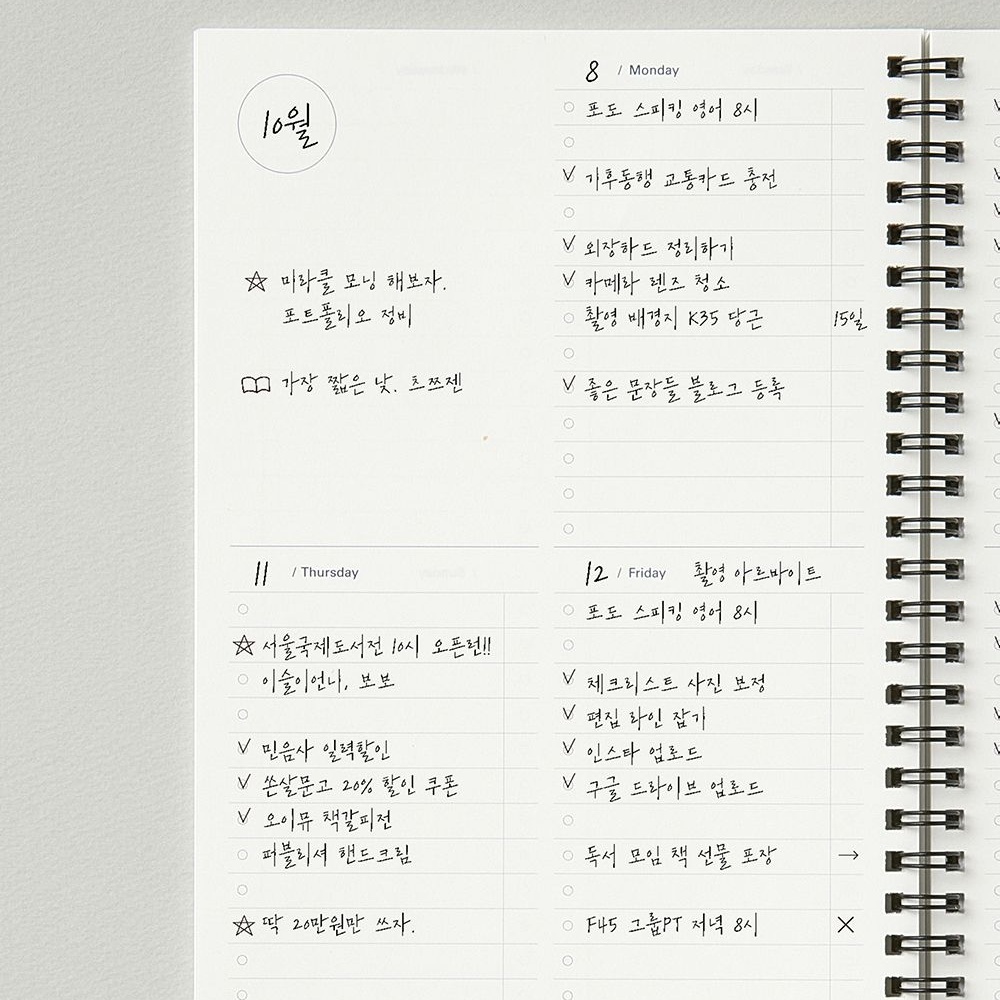 10월
☆ 미라클 모닝 해보자.
포트폴리오 정비
가장 짧은 낮. 츠쯔젠
8 / Monday
포도 스피킹 영어 8시
✓ 기후동행 교통카드 충전
✓ 외장하드 정리하기
✓ 카메라 렌즈 청소
촬영 배경지 K35 당근 15일
✓ 좋은 문장들 블로그 등록
11 / Thursday
☆ 서울국제도서전 10시 오픈런!!
이슬이언니, 보보
✓ 민음사 일력할인
✓ 쏜살문고 20% 할인 쿠폰
✓ 오이뮤 책갈피전
퍼블리셔 핸드크림
☆ 딱 20만원만 쓰자.
12 / Friday 촬영 아르바이트
포도 스피킹 영어 8시
✓ 체크리스트 사진 보정
✓ 편집 라인 잡기
✓ 인스타 업로드
✓ 구글 드라이브 업로드
독서 모임 책 선물 포장 →
F45 그룹PT 저녁 8시 ×